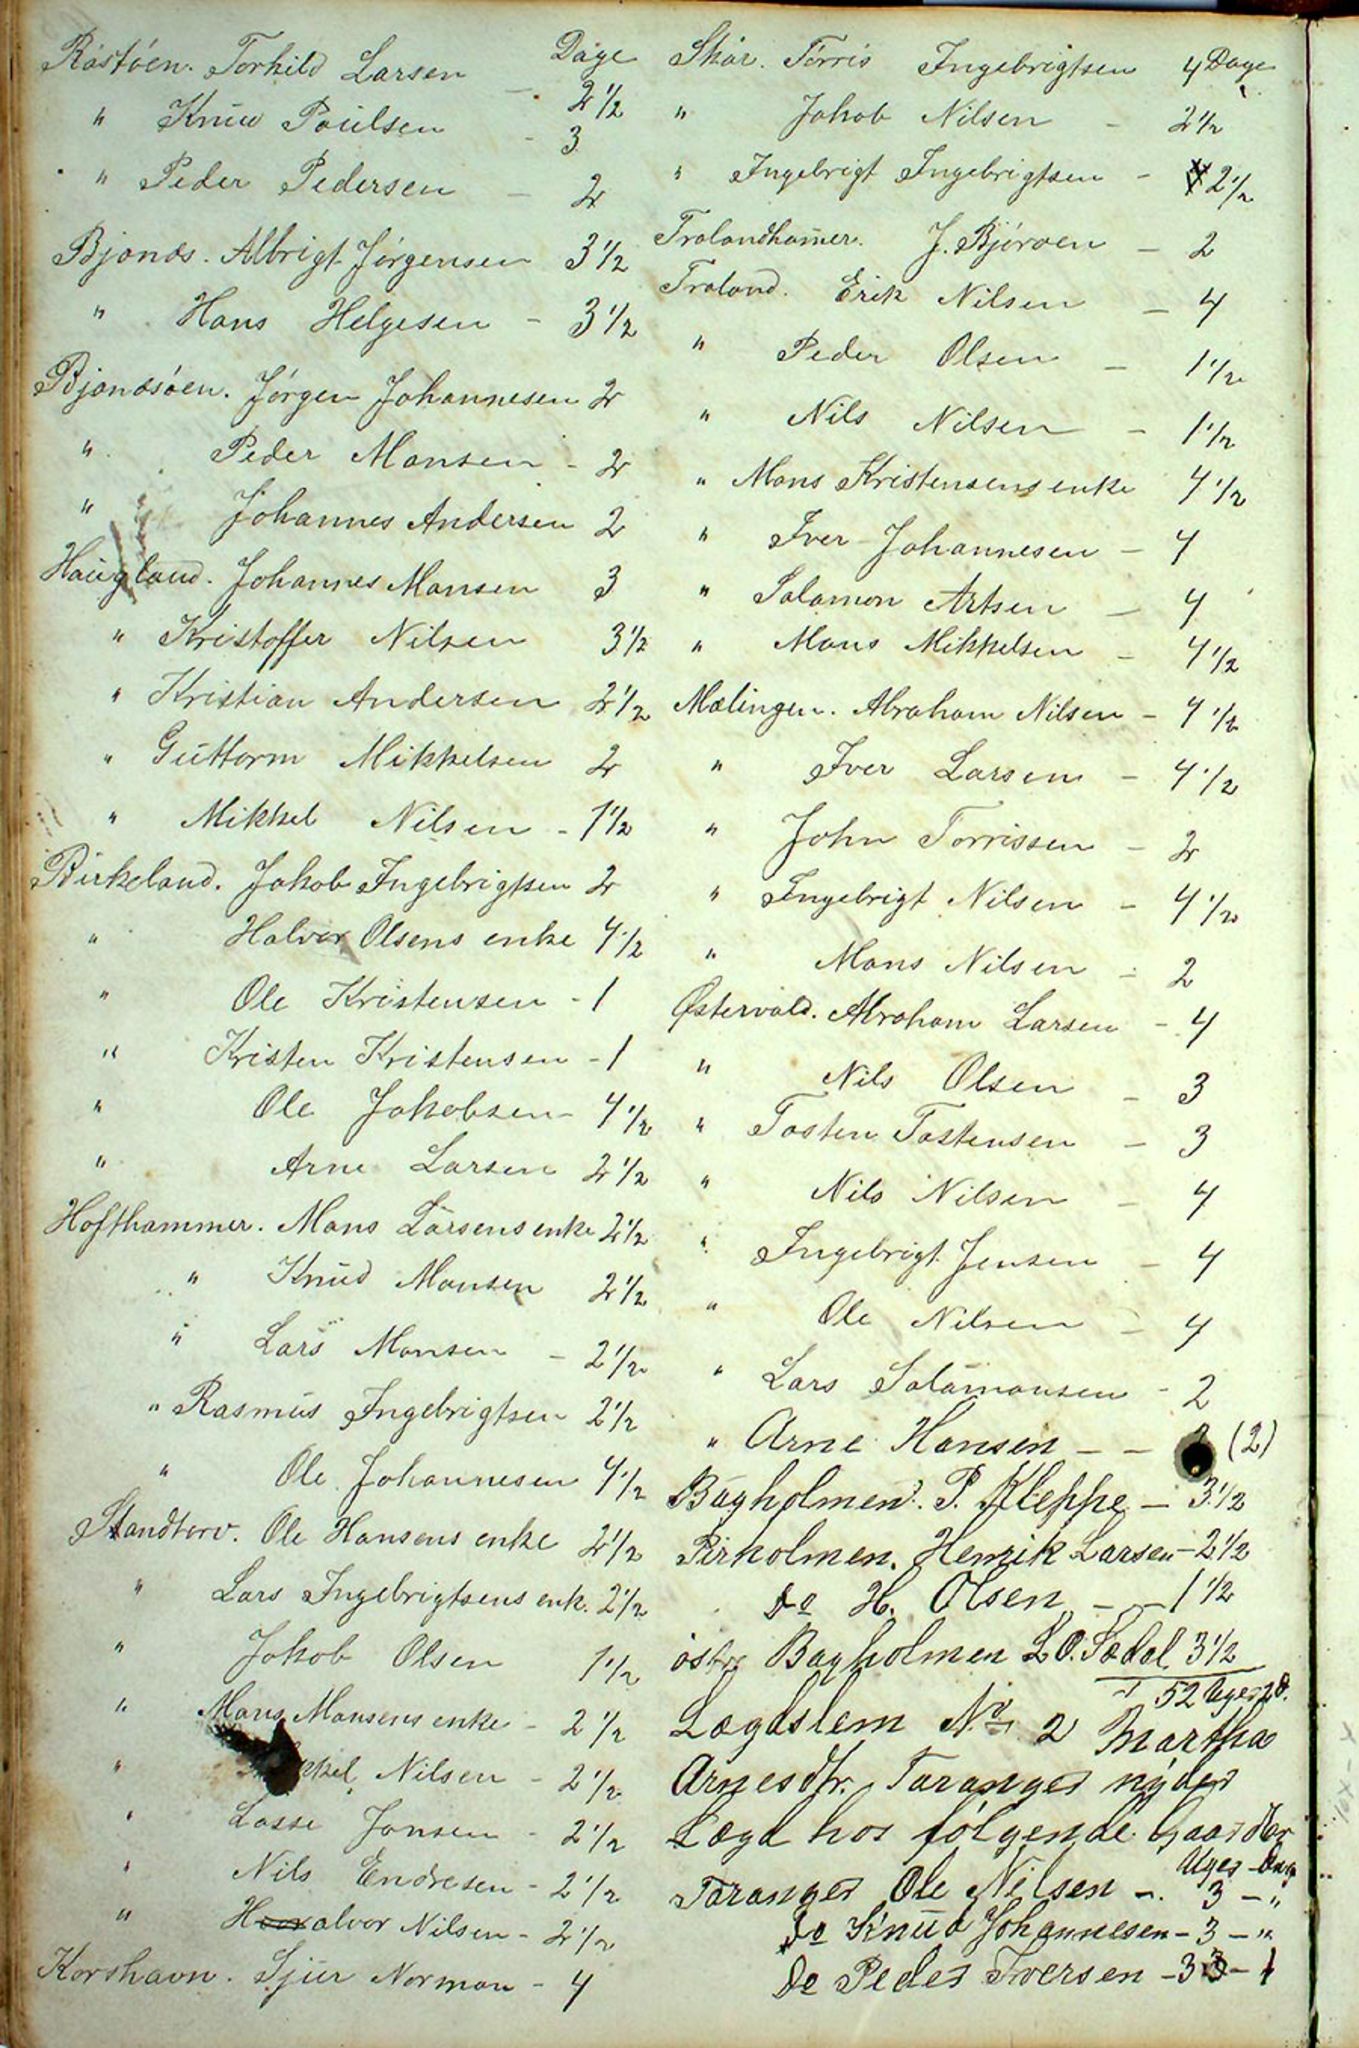 Dage
Röstöen. Torkild Larsen - 2 1/2
" Knud Poulsen - 3
" Peder Pedersen - 2
Bjonæs. Albrigt Jørgensen 3 1/2
" Hans Helgesen - 3 1/2
Bjonæsöen. Jørgen Johannesen 2
" Peder Monsen - 2
" Johannes Andersen 2
Haugland. Johannes Monsen 3
" Kristoffer Nilsen 3 1/2
" Kristian Andersen 2 1/2
" Guttorm Mikkelsen 2
" Mikkel Nilsen - 1 1/2
Birkeland. Jakob Ingebrigtsen 2
" Halvor Olsens enke 4 1/2
" Ole Kristensen - 1
" Kristen Kristensen - 1
" Ole Jakobsen - 4 1/2
" Arne Larsen 2 1/2
Hofthammer. Mons Larsens enke 2 1/2
" Knud Monsen 2 1/2
" Lars Monsen - 2 1/2
" Rasmus Ingebrigtsen 2 1/2
" Ole Johannesen 4 1/2
Standtorv. Ole Hansens enke 2 1/2
" Lars Ingebrigtsens enk. 2 1/2
" Jakob Olsen 1 1/2
" Mons Monsens enke - 2 1/2
" Nilsen - 2 1/2
" Lasse Jansen - 2 1/2
" Nils Endresen - 2 1/2
" Halvor Nilsen - 2 1/2
Korshavn. Sjur Norman - 4
Skår. Törris Ingebrigtsen 4 Dage
" Jakob Nilsen - 2 1/2
" Ingebrigt Ingebrigtsen - 2 1/2
Trolandhamer. J. Bjøroen - 2
Troland. Erik Nilsen - 4
" Peder Olsen - 1 1/2
" Nils Nilsen - 1 1/2
" Mons Kristensens enke 4 1/2
" Iver Johannesen - 4
" Salamon Artsen - 4
" Mons Mikkelsen - 4 1/2
Mælingen. Abraham Nilsen - 4 1/2
" Iver Larsen - 4 1/2
" John Torrissen - 2
" Ingebrigt Nilsen - 4 1/2
" Mons Nilsen - 2
Østervold. Abraham Larsen - 4
" Nils Olsen - 3
" Tosten Tostensen - 3
" Nils Nilsen - 4
" Ingebrigt Jensen - 4
" Ole Nilsen - 4
" Lars Salamonsen - 2
" Arne Hansen - - (2)
Bagholmen. P. Kleppe - 3 1/2
Pirholmen. Henrik Larsen - 2 1/2
do H. Olsen - - 1 1/2
östre Bagholmen L.O. Sædal 3 1/2
52 Uger 2 d.
Lægdslem No 2 Martha
Arnesdtr. Taranger nyder
Lægd hos følgende Gaardbr
Uger - Dage
Taranger Ole Nilsen - 3 - "
do Knud Johannesen - 3 - "
do Peder Iversen - 3 - 1